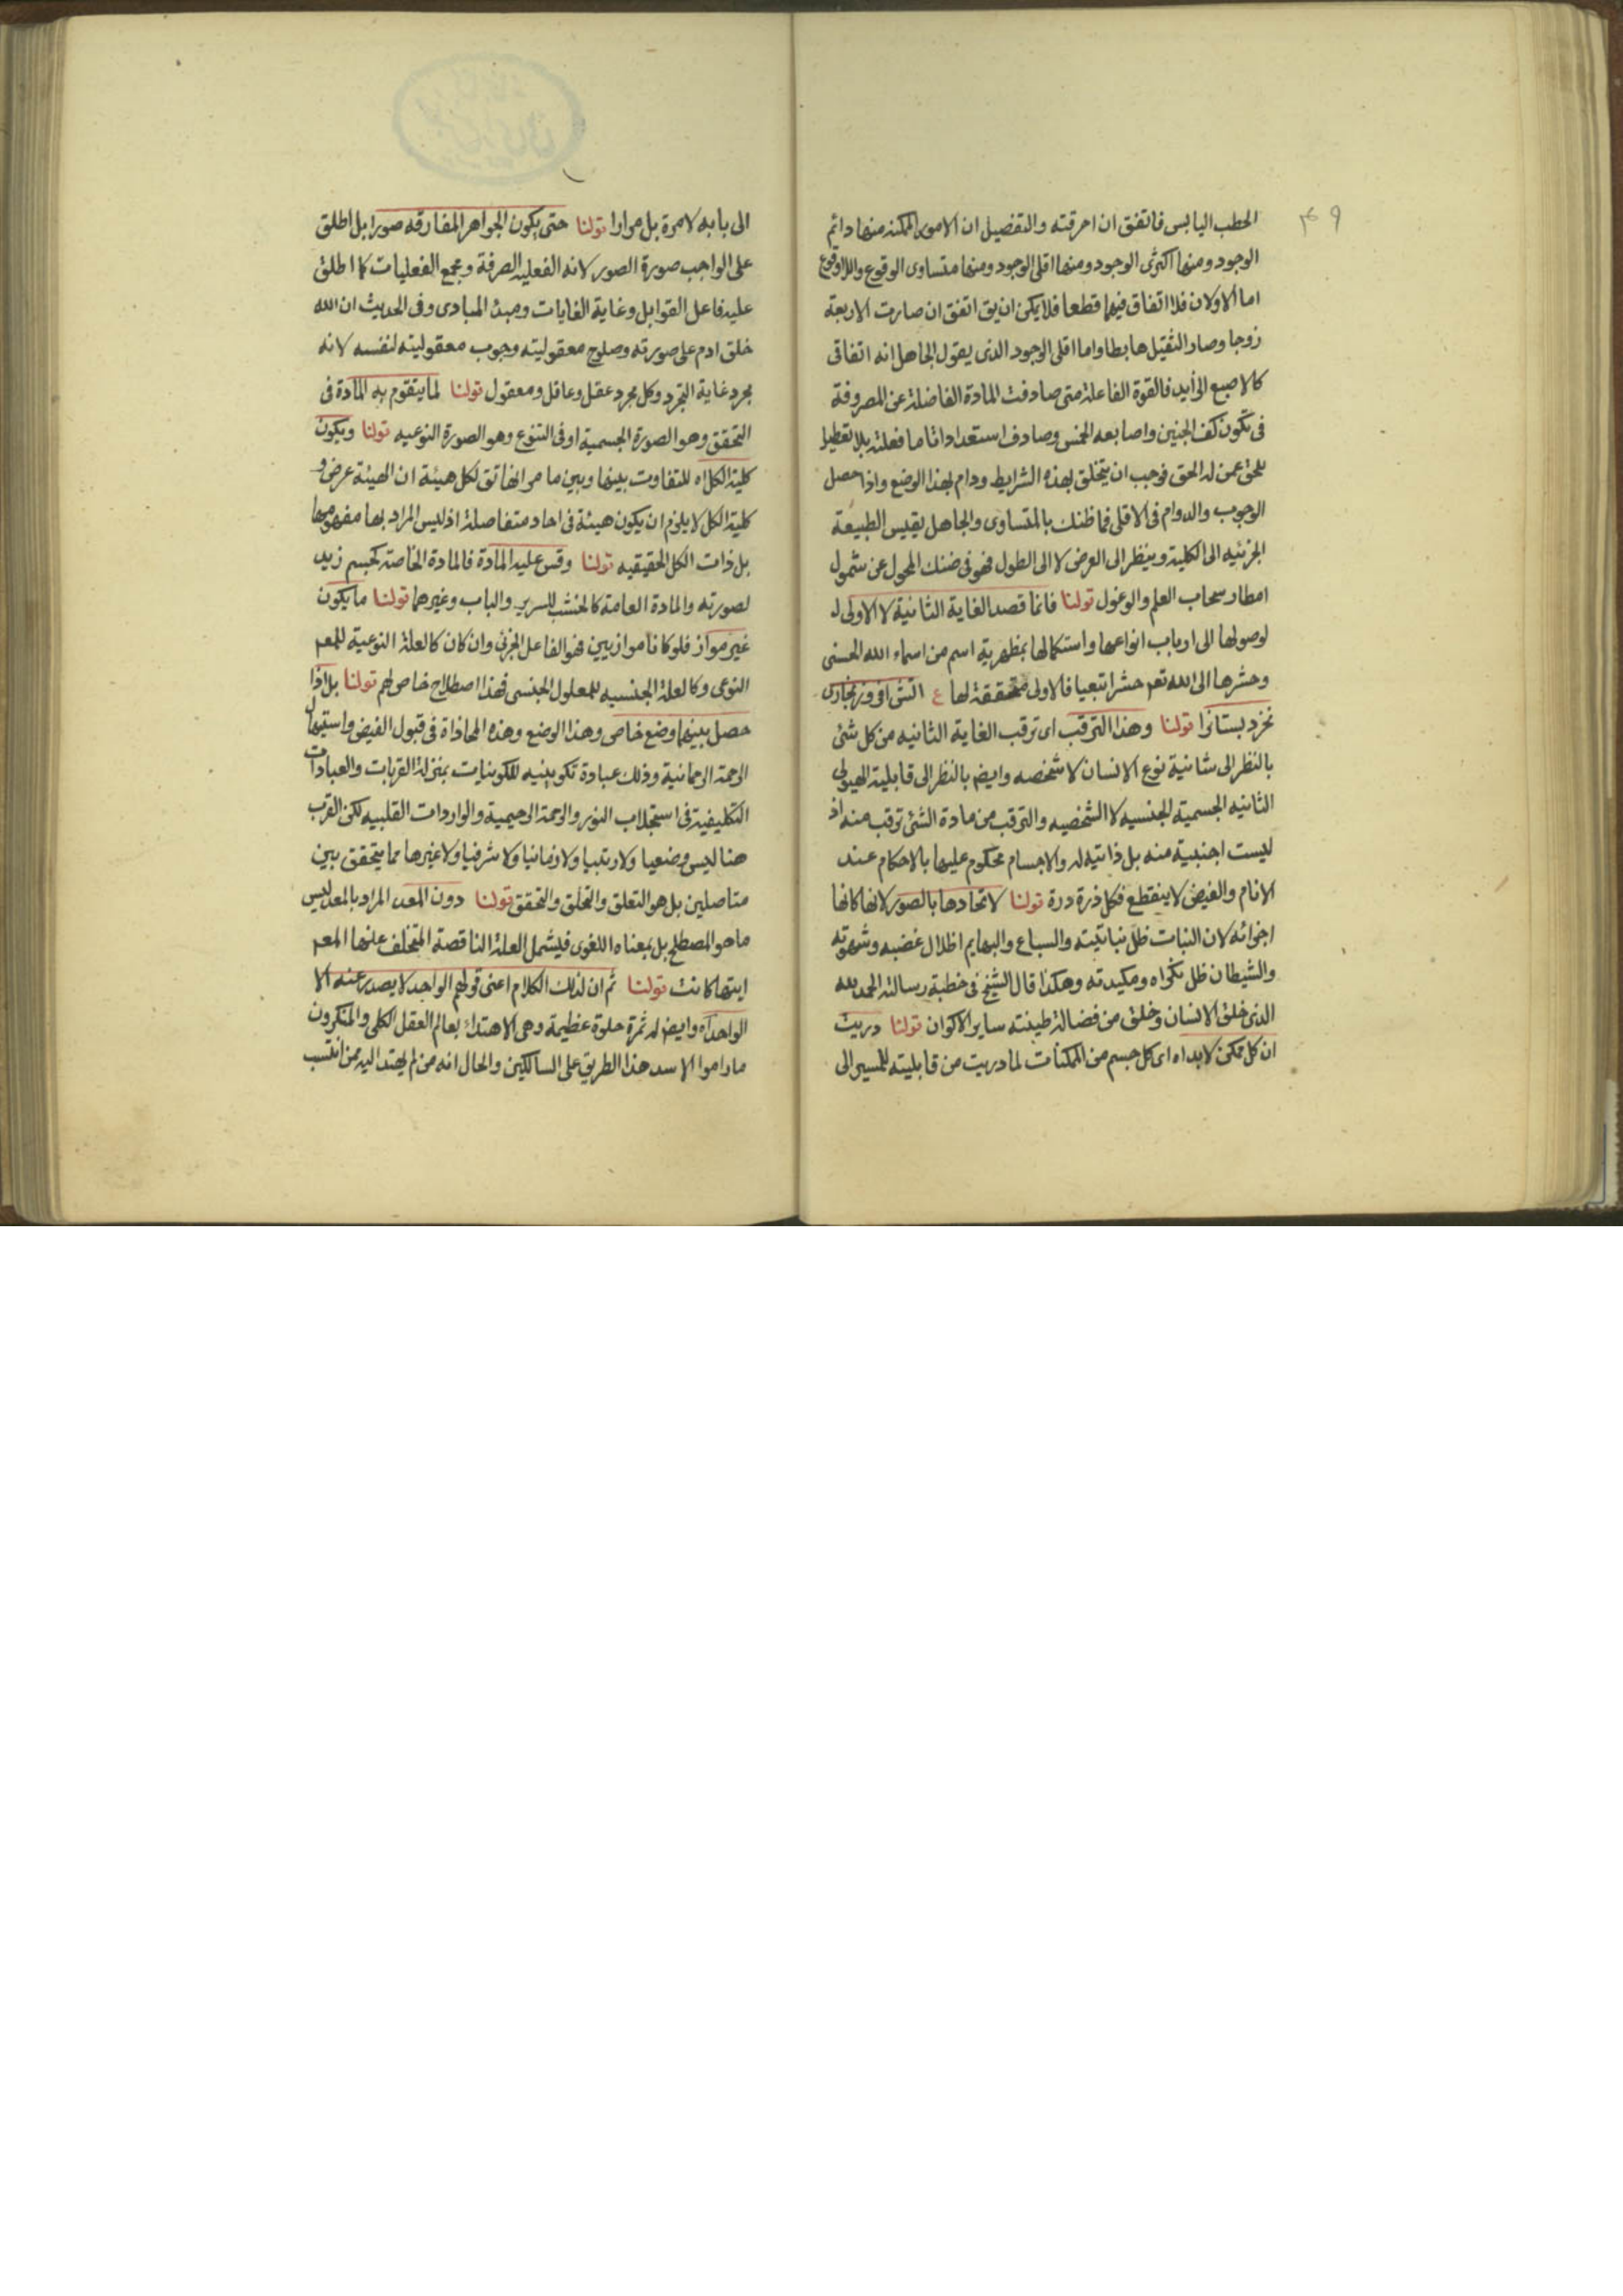 ۴۶۹
الحطب اليابس فاتفق ان احرقته والتفصيل ان الامور الممكنة منها دائم
الوجود ومنها اكثرى الوجود ومنها اقلى الوجود ومنها متساوى الوقوع واللاوقوع
اما الاولان فلا اتفاق فيهما قطعا فلا يمكن ان يق اتفق ان صارت الاربعة
زوجا وصار الثقيل هابطا واما اقلى الوجود الذى يقول الجاهل انه اتفاقى
كالاصبع الزايد فالقوة الفاعلة متى صادفت المادة الفاضلة عن المصروفة
فى تكون كف الجنين واصابعه الخمس وصادف استعدادا تاما فعلته بلا تعطيل
للحق عمن له الحق فوجب ان يتخلق بهذه الشرايط ودام بهذا الوضع واذا حصل
الوجوب والدوام فى الاقلى فما ظنك بالمتساوى والجاهل يقيس الطبيعة
الجزئيه الى الكلية وينظر الى العرض لا الى الطول فهو فى ضنك المحول عن شمول
امطار سحاب العلم والوغول قولنا فانما قصد الغاية الثانية لا الاولى لـ
لوصولها الى ارباب انواعها واستكمالها بمظهرية اسم من اسماء الله الحسنى
وحشرها الى الله تعم حشرا تبعيا فالاولى متحققة لها ع اتش افروز بخارى
نخرد بستانرا قولنا وهذا الترقب اى ترقب الغاية الثانيه من كل شئ
بالنظر الى شانية نوع الانسان لا شخصه وايضم بالنظر الى قابلية الهيولى
الثانيه الجسمية الجنسيه لا الشخصيه والترقب من مادة الشئ ترقب منه اذ
ليست اجنبية منه بل ذاتية له والاجسام محكوم عليها بالاحكام عند
الانام والفيض لا ينقطع فكل ذرة درة قولنا لاتحادها بالصور لانها كانها
اجزائه لان النبات ظل نباتيته والسباع والبهايم اظلال غضبه وشهوته
والشيطان ظل نكراه ومكيدته وهكذا قال الشيخ فى خطبة رسالته الحمد لله
الذى خلق الانسان وخلق من فضالة طينته ساير الاكوان قولنا دريت
ان كل ممكن لابداه اى كل جسم من الممكنات لما دريت من قابليته للمسير الى
الى بابه لا مرة بل مرارا قولنا حتى يكون الجواهر المفارقه صورا بل اطلق
على الواجب صورة الصور لانه الفعليه الصرفة ومجمع الفعليات كما اطلق
عليه فاعل القوابل وغاية الغايات ومبدء المبادى وفى الحديث ان الله
خلق ادم على صورته وصلوح معقوليته وجوب معقوليته لنفسه لانه
مجرد غاية التجرد وكل مجرد عقل وعاقل ومعقول قولنا لما يتقوم به المادة فى
التحقق وهو الصورة الجسمية او فى التنوع وهو الصورة النوعيه قولنا ويكون
كلية الكل اه للتفاوت بينها وبين ما مر انها تق لكل هيئة ان الهيئة عرض و
كلية الكل لا يلزم ان يكون هيئة فى احاد متفاصلة اذ ليس المراد بها مفهومها
بل ذات الكل الحقيقيه قولنا وقس عليه المادة فالمادة الخاصة كجسم زيد
لصورته والمادة العامة كالخشب للسرير والباب وغيرهما قولنا ما يكون
غير مواز فلو كانا موازيين فهو الفاعل الجزئى وان كان كالعلة النوعية للمعم
النوعى وكالعلة الجنسيه للمعلول الجنسى فهذا اصطلاح خاص لهم قولنا بل اذا
حصل بينهما وضع خاص وهذا الوضع وهذه المحاذاة فى قبول الفيض واستيهال
الرحمة الرحمانية وذلك عبادة تكوينيه للكوينات بمنزلة القربات والعبادات
التكليفية فى استجلاب النور والرحمة الرحيمية والواردات القلبيه لكن القرب
هنا ليس وضعيا ولا رتبيا ولا زمانيا ولا شرفيا ولا غيرها مما يتحقق بين
متاصلين بل هو التعلق والتخلق والتحقق قولنا دون المعد المراد بالمعد ليس
ما هو المصطلح بل بمعناه اللغوى فيشمل العلة الناقصة المتخلف عنها المعم
ايتها كانت قولنا ثم ان لذلك الكلام اعنى قولهم الواحد لا يصدر عنه الا
الواحد اه وايضم له ثمرة حلوة عظيمة وهى الاهتداء بعالم العقل الكلى والمنكرون
ما راموا الا سد هذا الطريق على السالكين والحال انه من لم يهتد اليه ممن انتسب